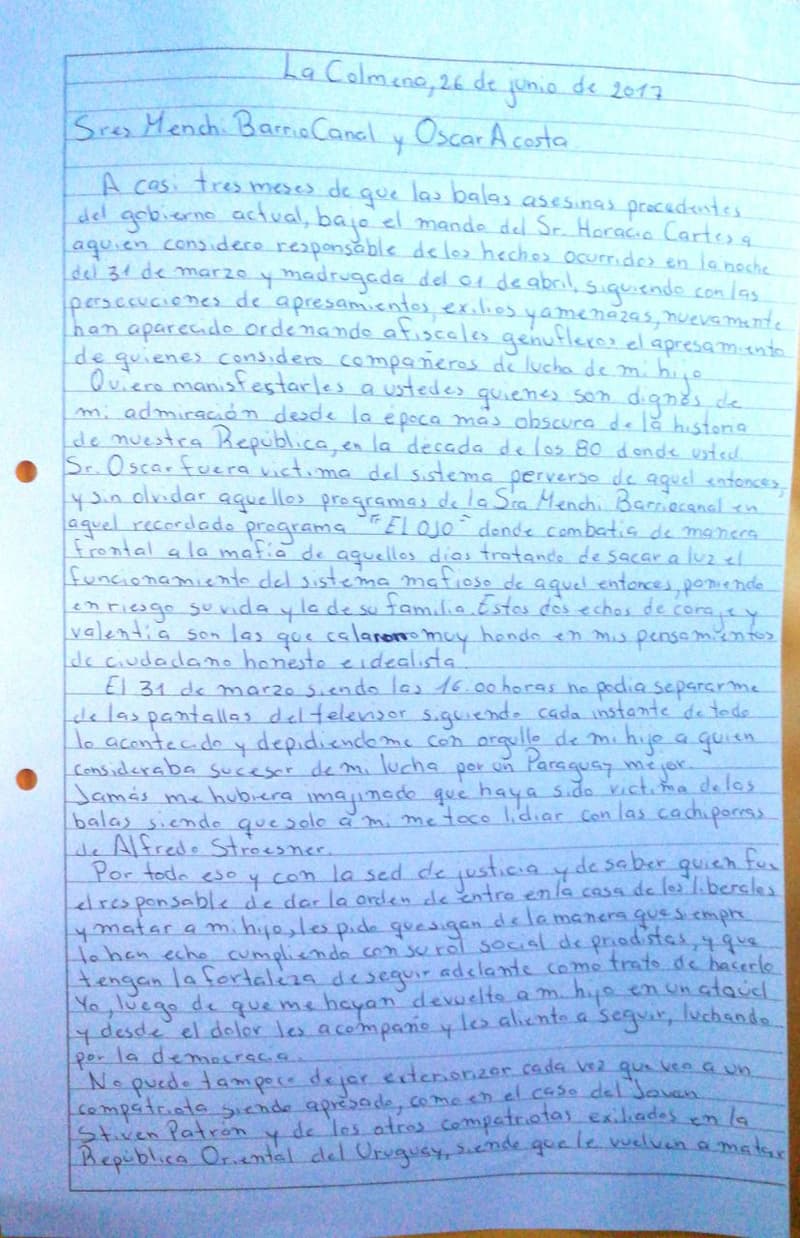 La Colmena, 26 de junio de 2017
Sres Menchi BarrioCanal y Oscar Acosta
A casi tres meses de que las balas asesinas procedentes
del gobierno actual, bajo el mando del Sr. Horacio Cartes a
aquien considero responsable de los hechos ocurridos en la noche
del 31 de marzo y madrugada del 01 de abril, siguiendo con las
persecuciones de apresamientos, exilios y amenazas, nuevamente
han aparecido ordenando a fiscales genuflexos el apresamiento
de quienes considero compañeros de lucha de mi hijo
Quiero manisfestarles a ustedes quienes son dignos de
mi admiración desde la época más obscura de la historia
de nuestra República, en la década de los 80 donde usted
Sr. Oscar fuera victima del sistema perverso de aquel entonces,
y sin olvidar aquellos programas de la Sra Menchi Barriocanal en
aquel recordado programa "El OJO" donde combatia de manera
frontal a la mafia de aquellos días tratando de sacar a luz el
funcionamiento del sistema mafioso de aquel entonces, poniendo
en riesgo su vida y la de su familia. Estos dos echos de coraje y
valentía son las que calaron muy hondo en mis pensamientos
de ciudadano honesto e idealista.
El 31 de marzo siendo las 16.00 horas no podia separarme
de las pantallas del televisor siguiendo cada instante de todo
lo acontecido y depidiendome con orgullo de mi hijo a quien
consideraba sucesor de mi lucha por un Paraguay mejor.
Jamás me hubiera imajinado que haya sido victima de las
balas siendo que solo a mi me toco lidiar con las cachiporras
de Alfredo Stroesner.
Por todo eso y con la sed de justicia y de saber quien fue
el responsable de dar la orden de entro en la casa de los liberales
y matar a mi hijo, les pido que sigan de la manera que siempre
lo han echo cumpliendo con su rol social de priodistas, y que
tengan la fortaleza de seguir adelante como trato de hacerlo
Yo, luego de que me hayan devuelto a mi hijo en un ataúd
y desde el dolor les acompaño y les aliento a seguir, luchando
por la democracia.
No puedo tampoco dejar exteriorizar cada vez que veo a un
compatriota siendo apresado, como en el caso del Joven
Stiven Patrón y de los otros compatriotas exiliados en la
República Oriental del Uruguay, siendo que le vuelven a matar